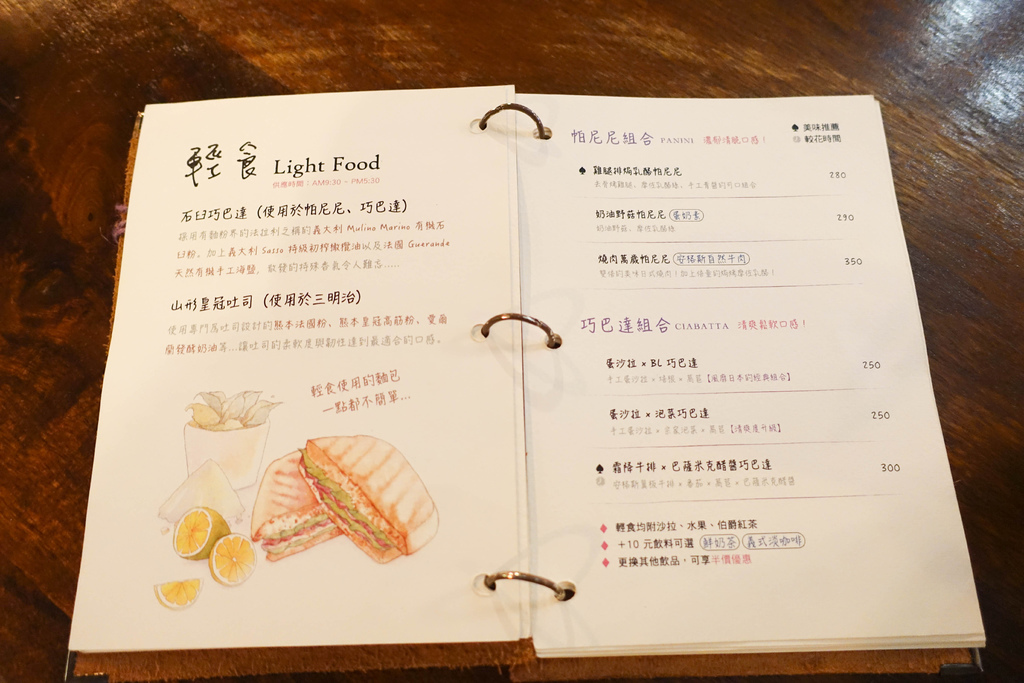 輕食 Light Food
供應時間：AM9:30 ~ PM5:30
石臼巧巴達（使用於帕尼尼、巧巴達）
採用有麵粉界的法拉利之稱的義大利 Mulino Marino 有機石
臼粉。加上義大利 Sasso 特級初榨橄欖油以及法國 Guerande
天然有機手工海鹽，散發的特殊香氣令人難忘.....
山形皇冠吐司（使用於三明治）
使用專門為吐司設計的熊本法國粉、熊本皇冠高筋粉、愛爾
蘭發酵奶油等...讓吐司的柔軟度與韌性達到最適合的口感。
輕食使用的麵包
一點都不簡單...
帕尼尼組合 PANINI 濃郁清脆口感！
♠ 美味推薦
較花時間
♠ 雞腿排焗乳酪帕尼尼 280
摩佐乳酪絲、手工青醬的可口組合
奶油野菇帕尼尼 蛋奶素 290
奶油野菇、摩佐乳酪絲
燒肉萬歲帕尼尼 安格斯自然牛肉 350
雙倍的美味日式燒肉！加上倍量的焗烤摩佐乳酪！
巧巴達組合 CIABATTA 清爽鬆軟口感！
蛋沙拉 × BL 巧巴達 250
手工蛋沙拉 × 培根 × 萵苣【風靡日本的經典組合】
蛋沙拉 × 泡菜巧巴達 250
手工蛋沙拉 × 宗家泡菜 × 萵苣【清爽度升級】
♠ 霜降牛排 × 巴薩米克醋醬巧巴達 300
安格斯蓋板牛排 × 番茄 × 萵苣 × 巴薩米克醋醬
♦ 輕食均附沙拉、水果、伯爵紅茶
♦ +10 元飲料可選 鮮奶茶 義式淡咖啡
♦ 更換其他飲品，可享半價優惠